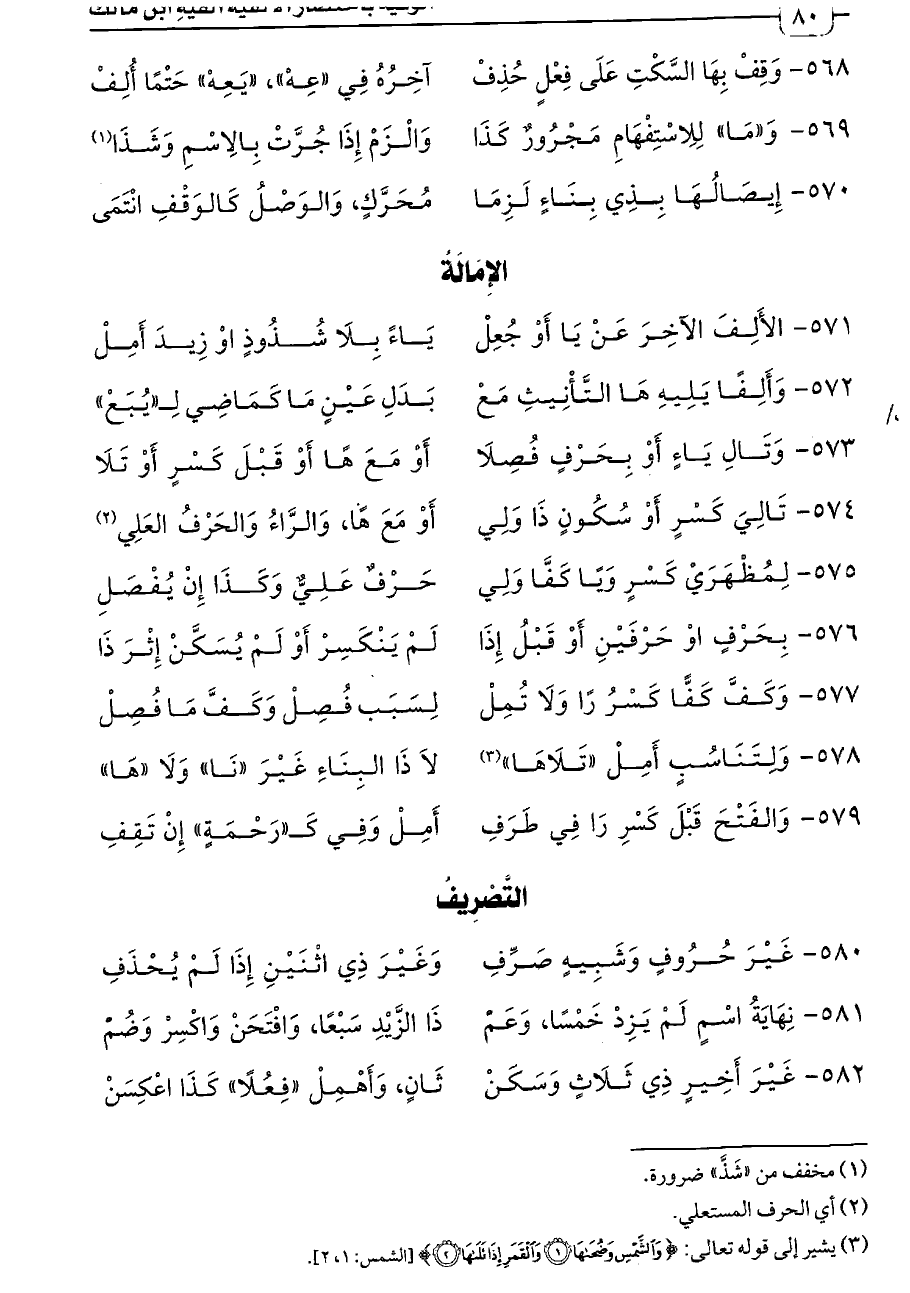 ٨٠
٥٦٨- وَقِفْ بِهَا السَّكْتِ عَلَى فِعْلٍ حُذِفْ آخِرُهُ فِي «عِهْ»، «يَعِهْ» حَتْمًا أُلِفْ
٥٦٩- وَ«مَا» لِلِاسْتِفْهَامِ مَجْرُورٌ كَذَا وَالْزَمْ إِذَا جُرَّتْ بِالِاسْمِ وَشَذَا(١)
٥٧٠- إِيصَالُهَا بِذِي بِنَاءٍ لَزِمَا مُحَرَّكٍ، وَالوَصْلُ كَالوَقْفِ انْتَمَى
الإِمَالَةُ
٥٧١- الأَلِفَ الآخِرَ عَنْ يَا أَوْ جُعِلْ يَاءً بِلَا شُذُوذٍ اوْ زِيدَ أَمِلْ
٥٧٢- وَأَلِفًا يَلِيهِ هَا التَّأْنِيثِ مَعْ بَدَلِ عَيْنِ مَا كَمَاضِي لِـ«يُبَعْ»
٥٧٣- وَتَالِ يَاءٍ أَوْ بِحَرْفٍ فُصِلَا أَوْ مَعَ هَا أَوْ قَبْلَ كَسْرٍ أَوْ تَلَا
٥٧٤- تَالِيَ كَسْرٍ أَوْ سُكُونٍ ذَا وَلِي أَوْ مَعَ هَا، وَالرَّاءُ وَالحَرْفُ العَلِي(٢)
٥٧٥- لِمُظْهَرَيْ كَسْرٍ وَيَا كَفَّا وَلِي حَرْفٌ عَلِيٌّ وَكَذَا إِنْ يُفْصَلِ
٥٧٦- بِحَرْفٍ اوْ حَرْفَيْنِ أَوْ قَبْلُ إِذَا لَمْ يَنْكَسِرْ أَوْ لَمْ يُسَكَّنْ إِثْرَ ذَا
٥٧٧- وَكَفَّ كَفًّا كَسْرُ رَا وَلَا تُمِلْ لِسَبَبٍ فُصِلْ وَكَفَّ مَا فُصِلْ
٥٧٨- وَلِتَنَاسُبٍ أَمِلْ «تَلَاهَا»(٣) لاَ ذَا البِنَاءِ غَيْرَ «نَا» وَلَا «هَا»
٥٧٩- وَالفَتْحَ قَبْلَ كَسْرِ رَا فِي طَرَفِ أَمِلْ وَفِي كَـ«رَحْمَةٍ» إِنْ تَقِفِ
التَّصْرِيفُ
٥٨٠- غَيْرَ حُرُوفٍ وَشَبِيهٍ صَرِّفِ وَغَيْرَ ذِي اثْنَيْنِ إِذَا لَمْ يُحْذَفِ
٥٨١- نِهَايَةُ اسْمٍ لَمْ يَزِدْ خَمْسًا، وَعَمّْ ذَا الزَّيْدِ سَبْعًا، وَافْتَحَنْ وَاكْسِرْ وَضُمّْ
٥٨٢- غَيْرَ أَخِيرٍ ذِي ثَلَاثٍ وَسَكَنْ ثَانٍ، وَأَهْمِلْ «فِعُلًا» كَذَا اعْكِسَنْ
(١) مخفف من «شَذَّ» ضرورة.
(٢) أي الحرف المستعلي.
(٣) يشير إلى قوله تعالى: ﴿وَالشَّمْسِ وَضُحَىٰهَا ١ وَالْقَمَرِ إِذَا تَلَىٰهَا ٢﴾ [الشمس: ١، ٢].